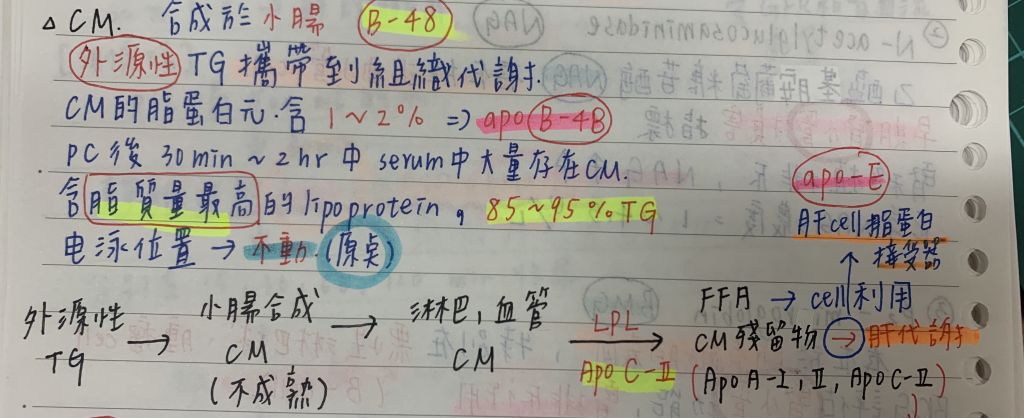 △ CM. 合成於小腸 B-48
外源性 TG 攜帶到組織代謝.
CM的脂蛋白元.含 1~2% => apo B-48
PC後 30min~2hr 中 serum中大量存在CM.
含脂質量最高的lipoprotein, 85~95%TG
电泳位置 → 不動.(原点)
apo-E
肝cell脂蛋白
接受器
外源性
TG
→
小腸合成
CM
(不成熟)
→
淋巴,血管
CM
LPL
→
Apo C-II
FFA → cell利用
CM殘留物 → 肝代謝
(Apo A-I, II, Apo C-II)